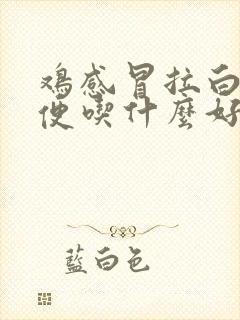 鸡感冒拉白
便喫什麼好
藍白色